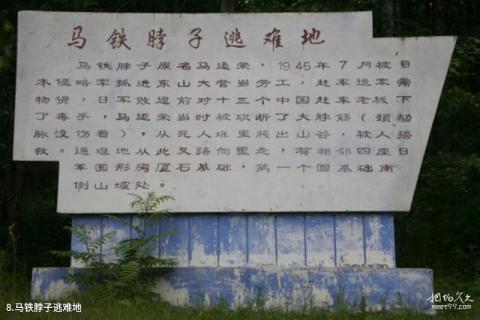 马铁脖子逃难地
马铁脖子原名马逵荣，1945年7月被日
本侵略军抓进东山大营当劳工，赶车造需
物资。日军败退前对十三个中国赶老板下
了毒手，马逵荣当时被砍断大筋（颈动
脉没伤着），从死人堆里爬出山谷，被人搭
救。逃难地从此叉路向里走，有个相邻四座日
军圆形房厦石基础，第一个圆基础南
侧山坡处。
8.马铁脖子逃难地
相约久久
meet99.com